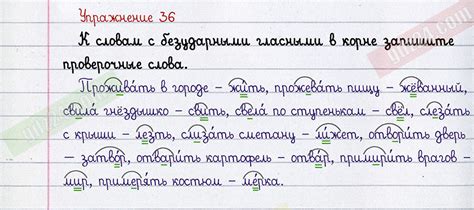 Упражнение 36
К словам с безударными гласными в корне запишите
проверочные слова.
Проживать в городе – жить, прожевать пищу – жёванный,
свила гнёздышко – свить, свела по ступенькам – свёл, слезать
с крыши – лезть, слизать сметану – лижет, отворить дверь
– затвор, отварить картофель – отвар, примирить врагов –
мир, примерять костюм – мерка.